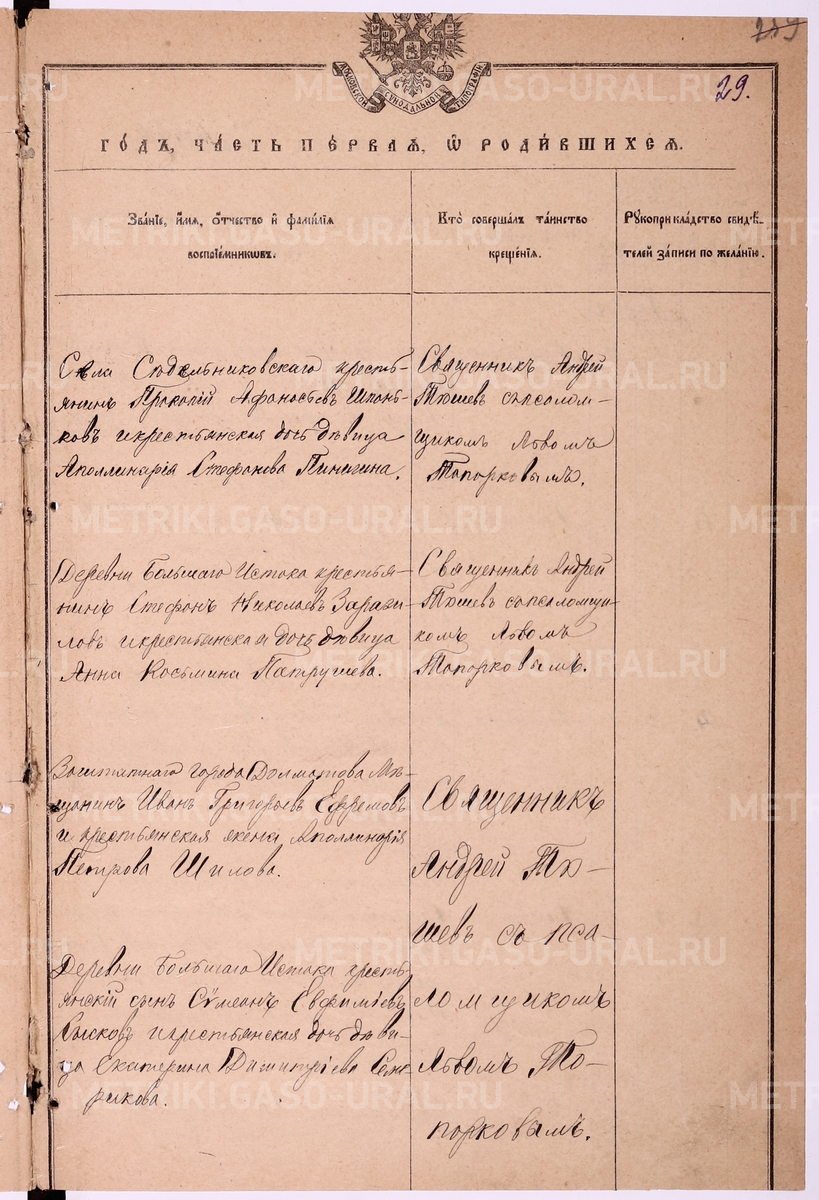 239
29.
МОСКОВСКОЙ СѴНОДАЛЬНОЙ ТИПОГРАФІИ
ГО́ДЪ, ЧА́СТЬ ПЕ́РВАЯ, Ѽ РОДИ́ВШИХСЯ.
Зва́нїе, и҆́мя, о҆́тчество и҆ фами́лїя
воспрїе́мникѡвъ.
Кто̀ соверша́лъ та́инство
креще́нїя.
Рꙋкоприкла́дство свидѣ́-
телей за́писи по жела́нїю.
Села Сюдельниковскаго кресть-
янинъ Прокопій Афонасьевъ
ковъ и крестьянская дочь дѣвица
Аполлинарія Стефанова Пинигина.
Священникъ Андрей
Тюшевъ съ псалом-
щикомъ Львомъ
Топорковымъ.
Деревни Большаго Истока крестья-
нинъ Стефанъ Николаевъ
ловъ и крестьянская дочь дѣвица
Анна Косьмина Патрушева.
Священникъ Андрей
Тюшевъ съ псаломщи-
комъ Львомъ
Топорковымъ.
Заштатнаго города Долматова Мѣ-
щанинъ Иванъ Григорьевъ Ефремовъ
и крестьянская жена Аполлинарія
Петрова Шилова.
Священникъ
Андрей Тю-
шевъ съ пса-
ломщикомъ
Львомъ То-
порковымъ.
Деревни Большаго Истока кресть-
янскій сынъ Сѵмеонъ Евфиміевъ
Лысковъ и крестьянская дочь дѣви-
ца Екатерина Димитріева
METRIKI.GASO-URAL.RU